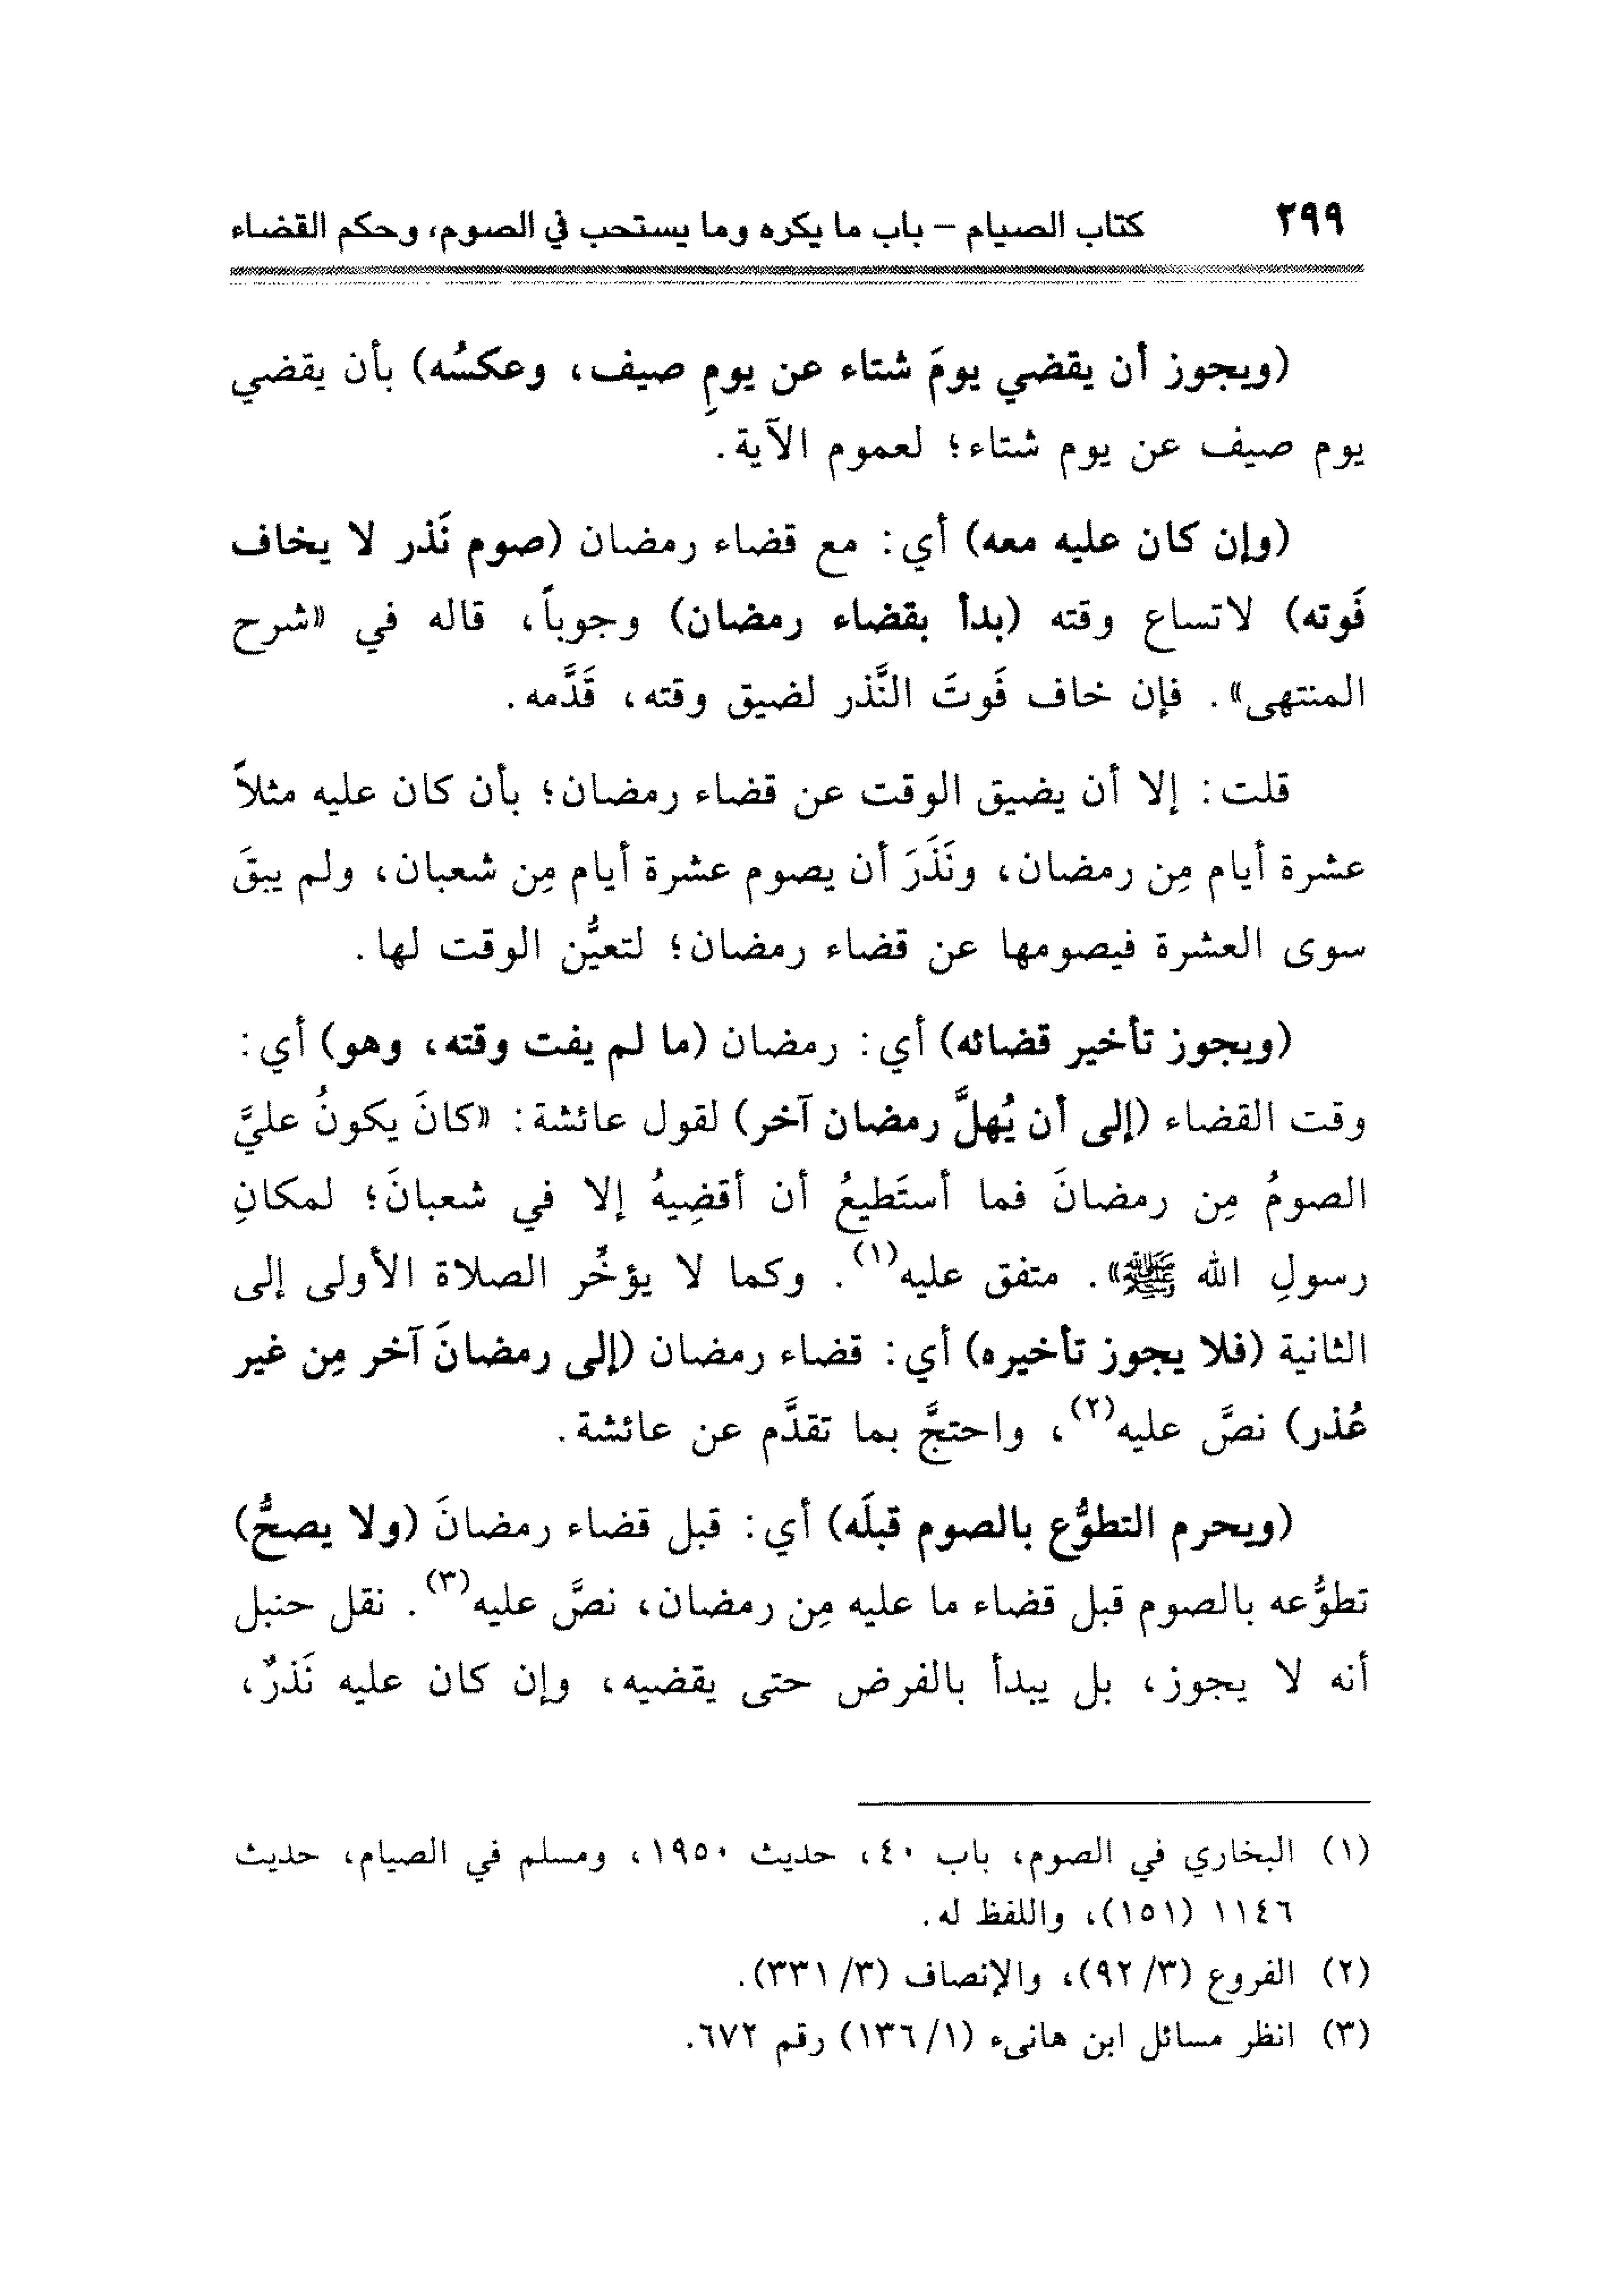 ٢٩٩ كتاب الصيام – باب ما يكره وما يستحب في الصوم، وحكم القضاء
(ويجوز أن يقضي يومَ شتاء عن يومِ صيف، وعكسُه) بأن يقضي
يوم صيف عن يوم شتاء؛ لعموم الآية.
(وإن كان عليه معه) أي: مع قضاء رمضان (صوم نَذر لا يخاف
فَوته) لاتساع وقته (بدأ بقضاء رمضان) وجوباً، قاله في «شرح
المنتهى». فإن خاف فَوتَ النَّذر لضيق وقته، قَدَّمه.
قلت: إلا أن يضيق الوقت عن قضاء رمضان؛ بأن كان عليه مثلاً
عشرة أيام مِن رمضان، ونَذَرَ أن يصوم عشرة أيام مِن شعبان، ولم يبقَ
سوى العشرة فيصومها عن قضاء رمضان؛ لتعيُّن الوقت لها.
(ويجوز تأخير قضائه) أي: رمضان (ما لم يفت وقته، وهو) أي:
وقت القضاء (إلى أن يُهلَّ رمضان آخر) لقول عائشة: «كانَ يكونُ عليَّ
الصومُ مِن رمضانَ فما أستَطيعُ أن أقضِيهُ إلا في شعبانَ؛ لمكانِ
رسولِ الله ﷺ». متفق عليه(١). وكما لا يؤخِّر الصلاة الأولى إلى
الثانية (فلا يجوز تأخيره) أي: قضاء رمضان (إلى رمضانَ آخر مِن غير
عُذر) نصَّ عليه(٢)، واحتجَّ بما تقدَّم عن عائشة.
(ويحرم التطوُّع بالصوم قبلَه) أي: قبل قضاء رمضانَ (ولا يصحُّ)
تطوُّعه بالصوم قبل قضاء ما عليه مِن رمضان، نصَّ عليه(٣). نقل حنبل
أنه لا يجوز، بل يبدأ بالفرض حتى يقضيه، وإن كان عليه نَذرٌ،
(١) البخاري في الصوم، باب ٤٠، حديث ١٩٥٠، ومسلم في الصيام، حديث
١١٤٦ (١٥١)، واللفظ له.
(٢) الفروع (٣/ ٩٢)، والإنصاف (٣/ ٣٣١).
(٣) انظر مسائل ابن هانىء (١/ ١٣٦) رقم ٦٧٢.